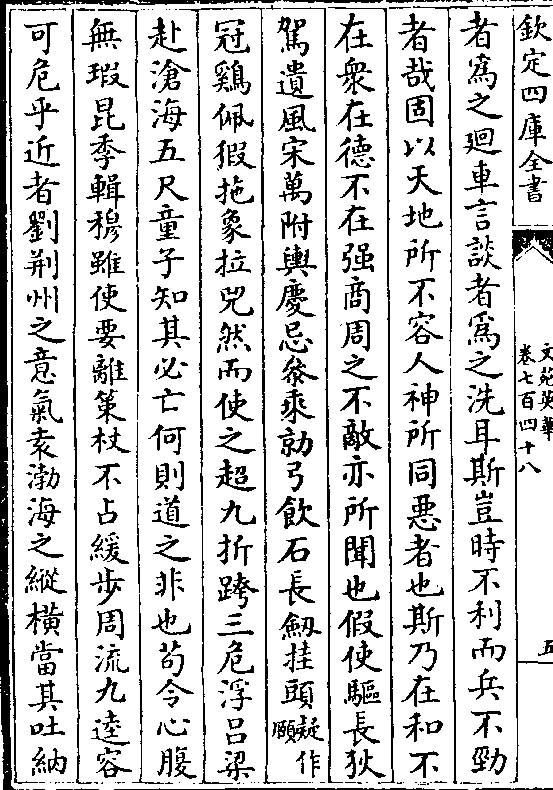 欽定四庫全書
文苑英華
卷七百四十八
五
者為之廻車言談者為之洗耳斯豈時不利而兵不勁
者哉固以天地所不容人神所同惡者也斯乃在和不
在衆在德不在强商周之不敵亦所聞也假使驅長狄
駕遺風宋萬附輿慶忌叅乗勍弓飲石長劒挂頭疑作頥
冠鷄佩猳拖象拉兕然而使之超九折跨三危浮吕梁
赴滄海五尺童子知其必亡何則道之非也苟令心腹
無瑕昆季輯穆雖使要離策杖不占緩步周流九逵容
可危乎近者劉荆州之意氣袁渤海之縱橫當其吐納